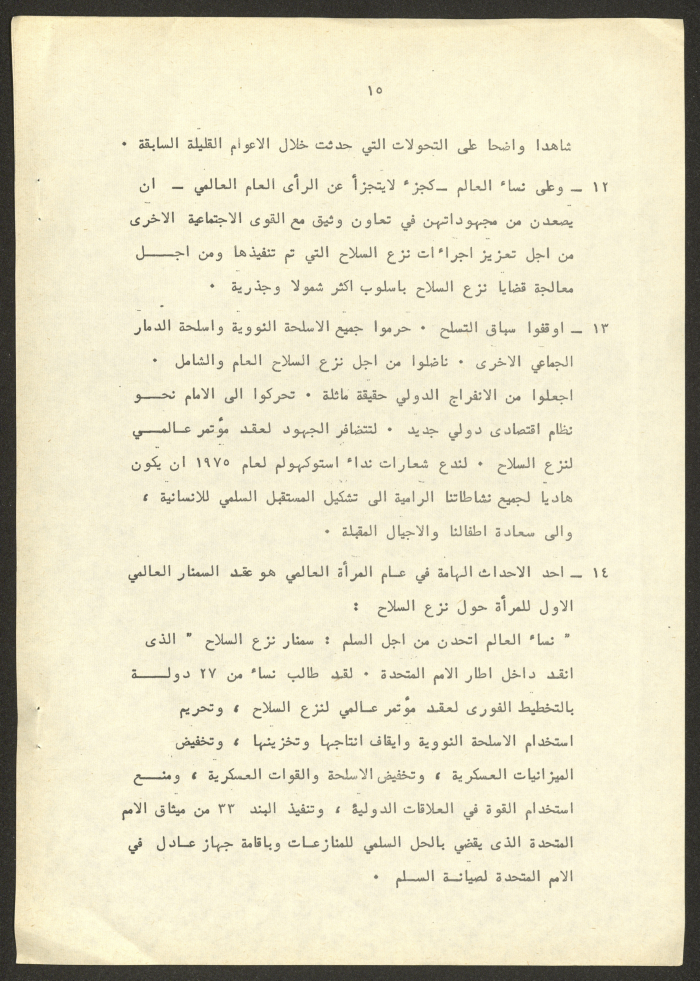 ١٥
شاهدا واضحا على التحولات التي حدثت خلال الاعوام القليلة السابقة ٠
١٢ ــ وعلى نساء العالم ــ كجزء لايتجزأ عن الرأى العام العالمي ــ ان
يصعدن من مجهوداتهن في تعاون وثيق مع القوى الاجتماعية الاخرى
من اجل تعزيز اجراءات نزع السلاح التي تم تنفيذها ومن اجـــل
معالجة قضايا نزع السلاح باسلوب اكثر شمولا وجذرية ٠
١٣ ــ اوقفوا سباق التسلح ٠ حرموا جميع الاسلحة النووية واسلحة الدمار
الجماعي الاخرى ٠ ناضلوا من اجل نزع السلاح العام والشامل ٠
اجعلوا من الانفراج الدولي حقيقة ماثلة ٠ تحركوا الى الامام نحـــو
نظام اقتصادى دولي جديد ٠ لتتضافر الجهود لعقد مؤتمر عـالمـــي
لنزع السلاح ٠ لندع شعارات نداء استوكهولم لعام ١٩٧٥ ان يكون
هاديا لجميع نشاطاتنا الرامية الى تشكيل المستقبل السلمي للانسانية ،
والى سعادة اطفالنا والاجيال المقبلة ٠
١٤ ــ احد الاحداث الهامة في عـام المرأة العالمي هو عقد السمنار العالمي
الاول للمرأة حول نزع السلاح :
" نساء العالم اتحدن من اجل السلم : سمنار نزع السلاح " الذى
انقد داخل اطار الامم المتحدة ٠ لقد طالب نساء من ٢٧ دولــــة
بالتخطيط الفورى لعقد مؤتمر عـالمي لنزع السلاح ، وتحريم
استخدام الاسلحة النووية وايقاف انتاجها وتخزينها ، وتخفيض
الميزانيات العسكرية ، وتخفيض الاسلحة والقوات العسكرية ، ومنـــع
استخدام القوة في العلاقات الدولية ، وتنفيذ البند ٣٣ من ميثاق الامم
المتحدة الذى يقضي بالحل السلمي للمنازعـات وباقامة جهاز عـادل في
الامم المتحدة لصيانـة السـلم ٠